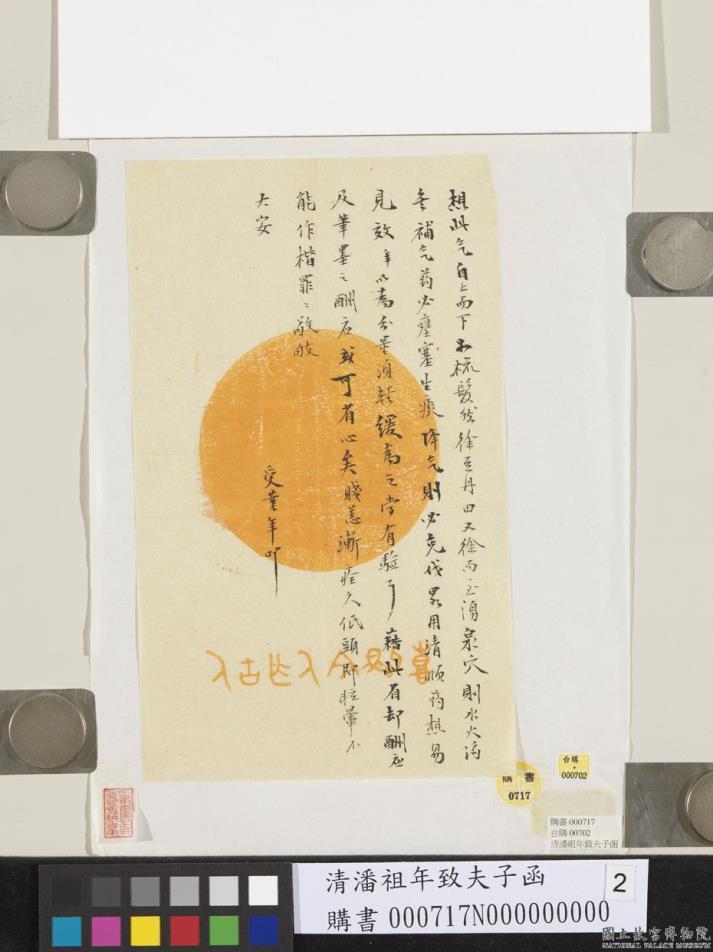 想此气自上而下如梳髮然徐至丹田又徐而至湧泉穴則水火濟
無補气药必壅塞生痰降气則必克伐畧用清順药想易
見效年以為分葉須輕緩為之當有驗可藉此省却酬应
及筆墨之酬应或可省心矣賤恙漸痊久低頭即眩暈不
能作楷罪〻敬啟
大安
受業年叩
購書
0717
台購
000702
購書 000717
台購 00702
清潘祖年致夫子函
清潘祖年致夫子函
購書 000717N000000000
2
國立故宮博物院
NATIONAL PALACE MUSEUM